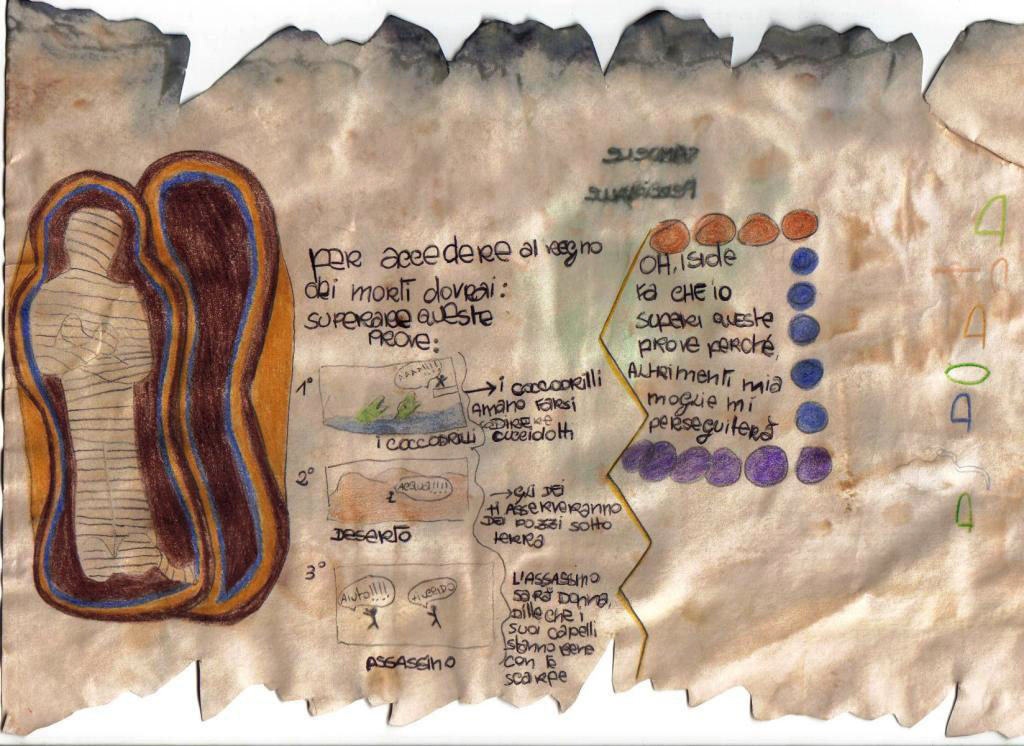 PER accedere al regno
dei morti dovrai:
superare queste
prove:
1°
AAAA!!!!
i coccodrilli
→ i coccodrilli
amano farsi
2°
ACQUA!!!!
DESERTO
→ gli dei
ti asserveranno
dei pozzi sotto
terra
3°
Aiuto!!!!
ti uccido
ASSASSINO
L'ASSASSINO
sarà donna,
dille che i
suoi capelli
stanno bene
con le
scarpe
SAMUELE
OH, iside
fa che io
superi queste
prove perché,
altrimenti mia
moglie mi
perseguiterà